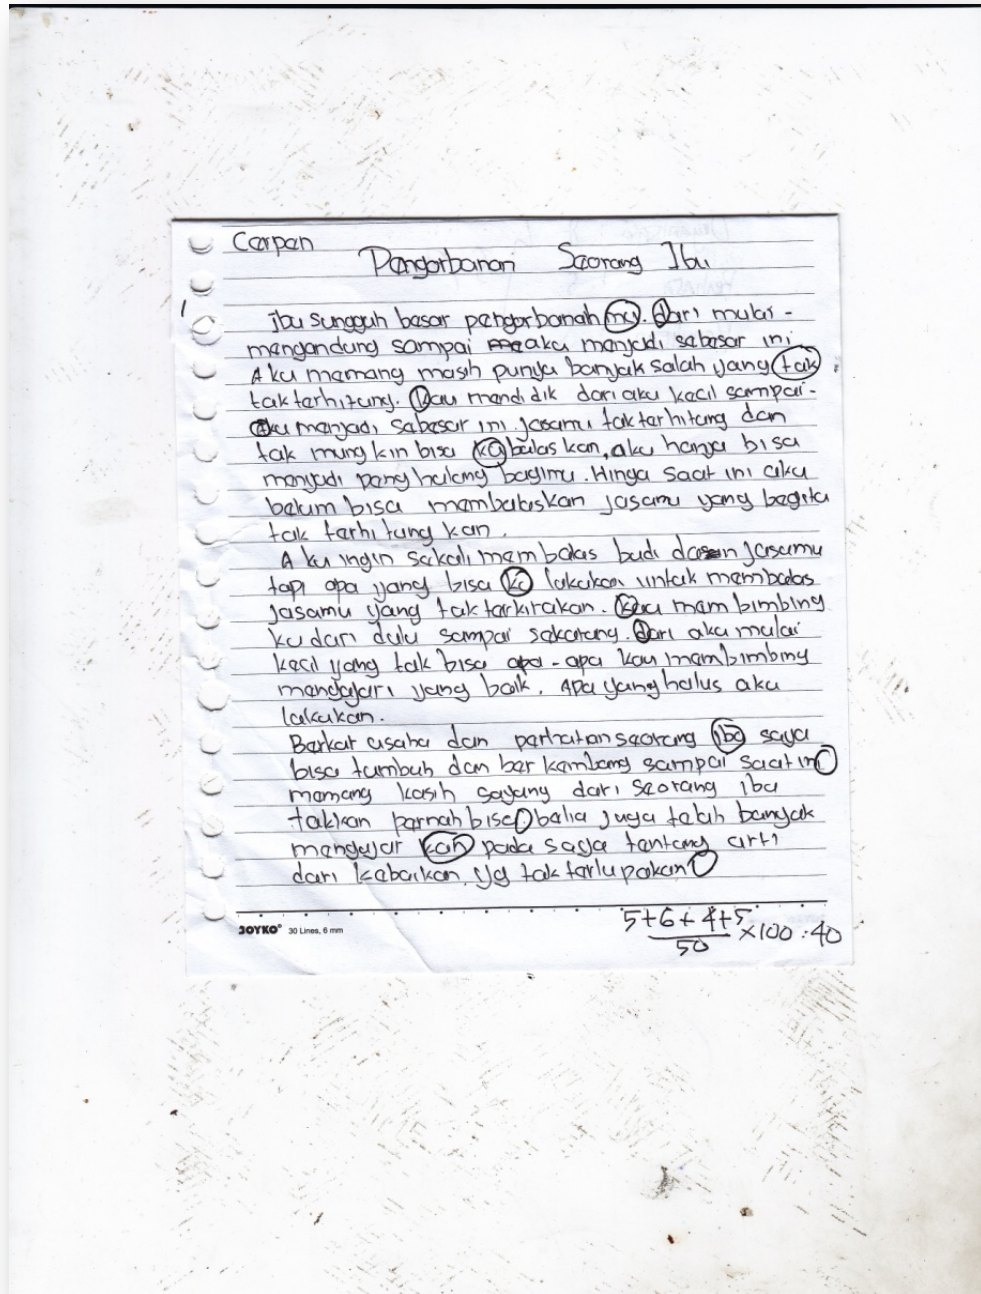 Cerpen
Pengorbanan Seorang Ibu
ibu sungguh besar pengorbanan mu. Dari mulai -
mengandung sampai aku menjadi sebesar ini
Aku memang masih punya banyak salah yang tak
tak terhitung. Kau mendidik dari aku kecil sampai -
Aku menjadi sebesar ini. jasamu tak terhitung dan
tak mungkin bisa ku balas kan, aku hanya bisa
menjadi penghulang bagimu. Hinga saat ini aku
belum bisa membalaskan jasamu yang begitu
tak terhitung kan.
Aku ingin sekali membalas budi dan jasamu
tapi apa yang bisa ku lakukan untuk membalas
jasamu yang tak terkirakan. Kau membimbing
ku dari dulu sampai sekarang. Dari aku mulai
kecil yang tak bisa apa - apa kau membimbing
mengajari yang baik. Apa yang halus aku
lakukan.
Berkat usaha dan perhatian seorang ibu saya
bisa tumbuh dan ber kembang sampai saat ini
memang kasih sayang dari seorang ibu
takkan pernah bisa beliau juga telah banyak
mengajar kan pada saya tentang arti
dari kebaikan yg tak terlupakan
JOYKO® 30 Lines, 6 mm
5+6+4+5
50
×100 : 40